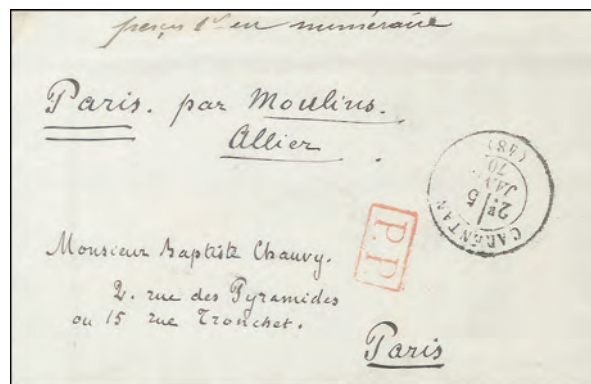 perçu 1f en numéraire
Paris. par Moulins.
Allier.
CARENTAN (48)
2E
5
JANV.
70
P.P.
Monsieur Baptiste Chauvy.
2. rue des Pyramides
ou 15 rue Tronchet.
Paris